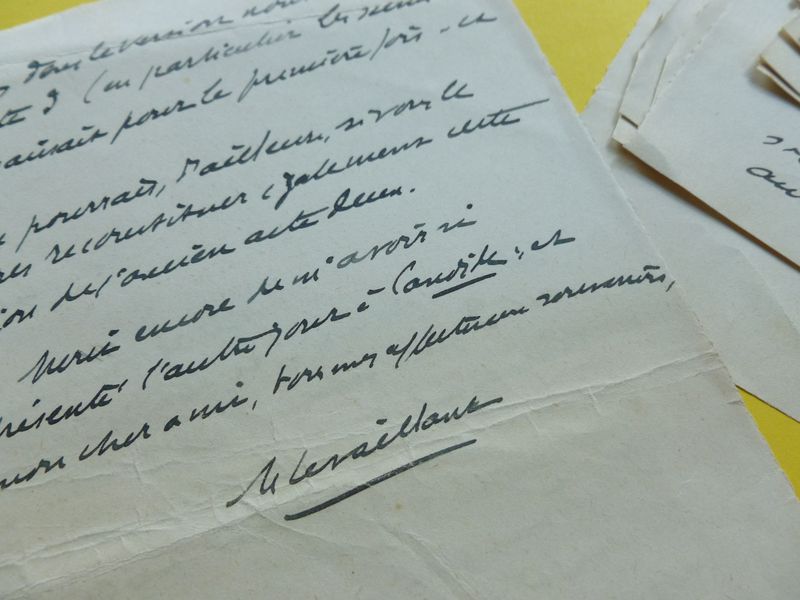 dans la version nou
(en particulier les scènes
paraissait pour la première fois - et
pourrais, d'ailleurs, si vous le
reconstituer également cette
de l'ancien acte deux.
Merci encore de m'avoir si
présenté l'autre jour à Candide, et
mon cher ami, tous mes affectueux souvenirs,
M Levaillant